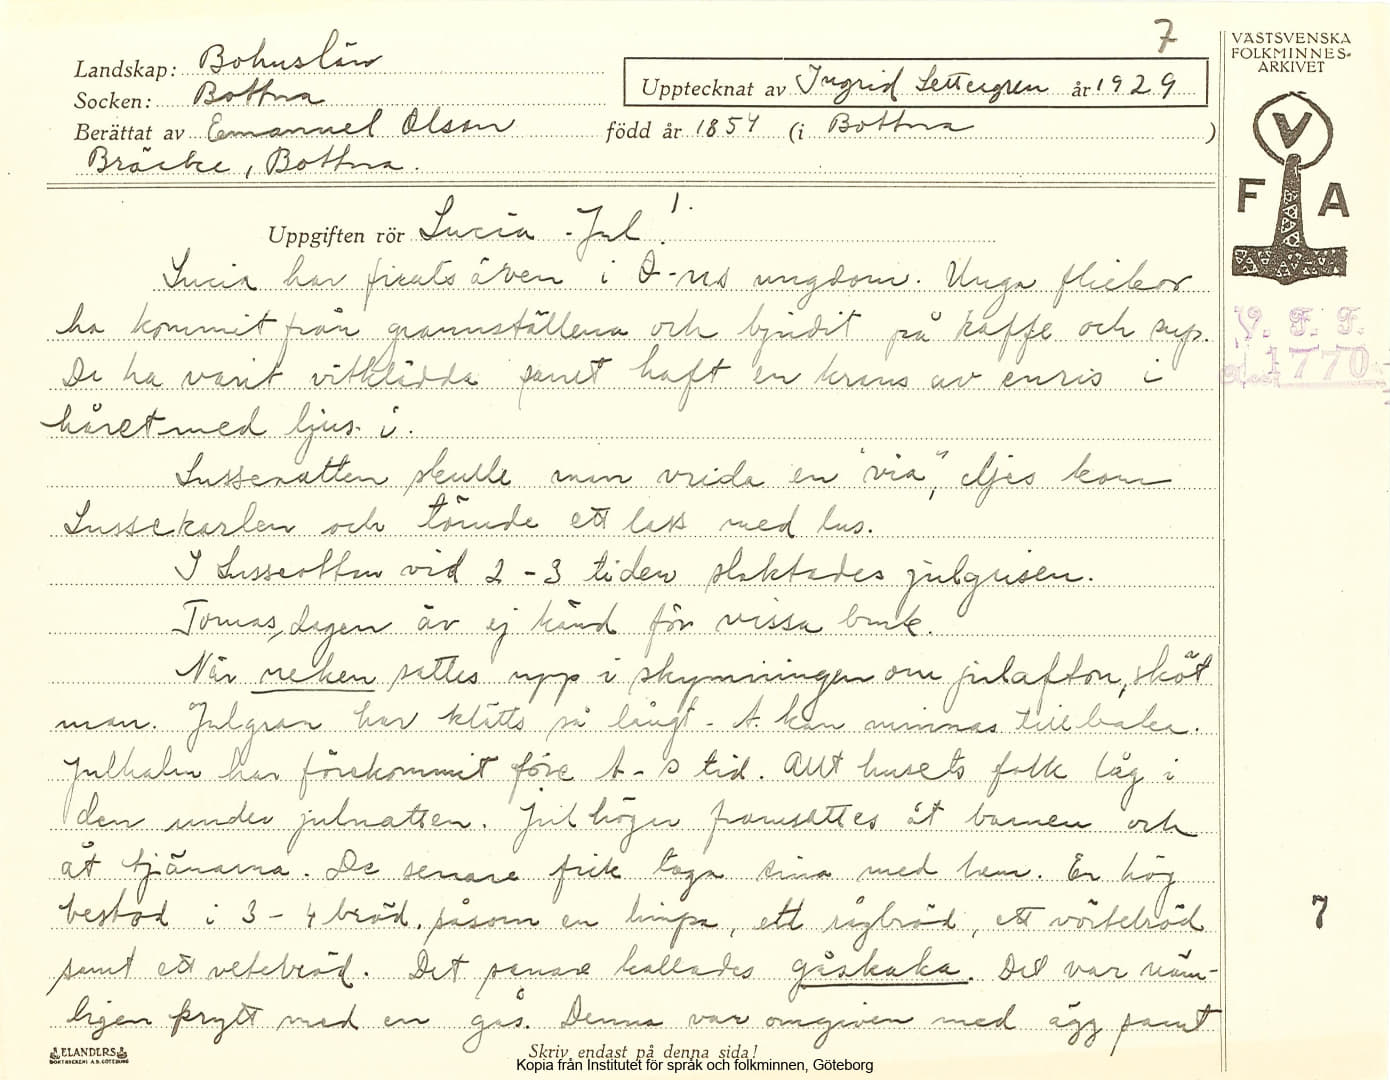 7
VÄSTSVENSKA
FOLKMINNES-
ARKIVET
Landskap: Bohuslän
Upptecknat av Ingrid Settergren år 1929
Socken: Bottna
Berättat av Emanuel Olson född år 1854 (i Bottna )
Bräcke, Bottna.
V
F A
Uppgiften rör Lucia - Jul 1.
Lucia har firats även i O-ns ungdom. Unga flickor
ha kommit från grannställena och bjudit på kaffe och sup.
De ha varit vitklädda samt haft en krans av enris i
håret med ljus i.
V. F. F.
1770
Lussenatten skulle man vrida en "via", eljes kom
Lussekarlen och tömde ett lass med lus.
I Lusseottan vid 2-3 tiden slaktades julgrisen.
Tomasdagen är ej känd för vissa bruk.
När neken sattes upp i skymningen om julafton, sköt
man. Julgran har klätts så långt - A. kan minnas tillbaka.
Julhalm har förekommit före A-s tid. Allt husets folk låg i
den under julnatten. Julhögar framsattes åt barnen och
åt tjänarna. De senare fick taga sina med hem. En hög
bestod i 3-4 bröd, såsom en limpa, ett rågbröd, ett vörtebröd
samt ett vetebröd. Det senare kallades gåskaka. Det var näm-
ligen prytt med en gås. Denna var omgiven med ägg samt
7
ELANDERS
BOKTRYCKERI A.B. GÖTEBORG
Skriv endast på denna sida!
Kopia från Institutet för språk och folkminnen, Göteborg